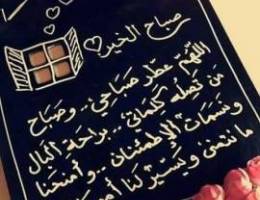 صباح الخير
اللهم عطر صباحي.. وصباح
من تصله كلماتي.. براحة البال
ونسمات الإطمئنان.. وأمنحنا
ما نتمنى ويسر لنا